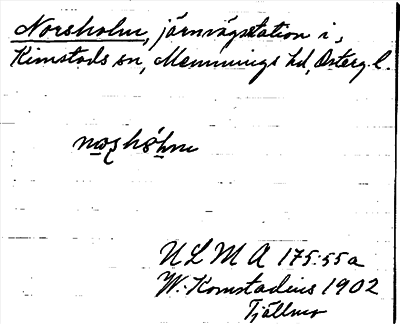 Norsholm, järnvägsstation i,
Kimstads sn, Memmings hd, Österg. l.
ULMA 175:55a
W. Komstadius 1902
Tjällmo